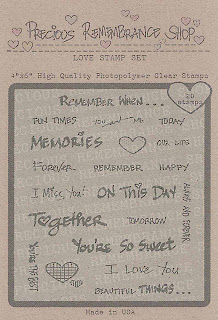 Precious Remembrance Shop
LOVE STAMP SET
4"x6" High Quality Photopolymer Clear Stamps
20 stamps
Remember When...
Fun Times You and Me Today
Memories Our Lips
Forever Remember Happy
I Miss You! On This Day
Always and Forever
Together Tomorrow
You're the Best
You're So Sweet
I Love You
Beautiful Things...
Made in USA